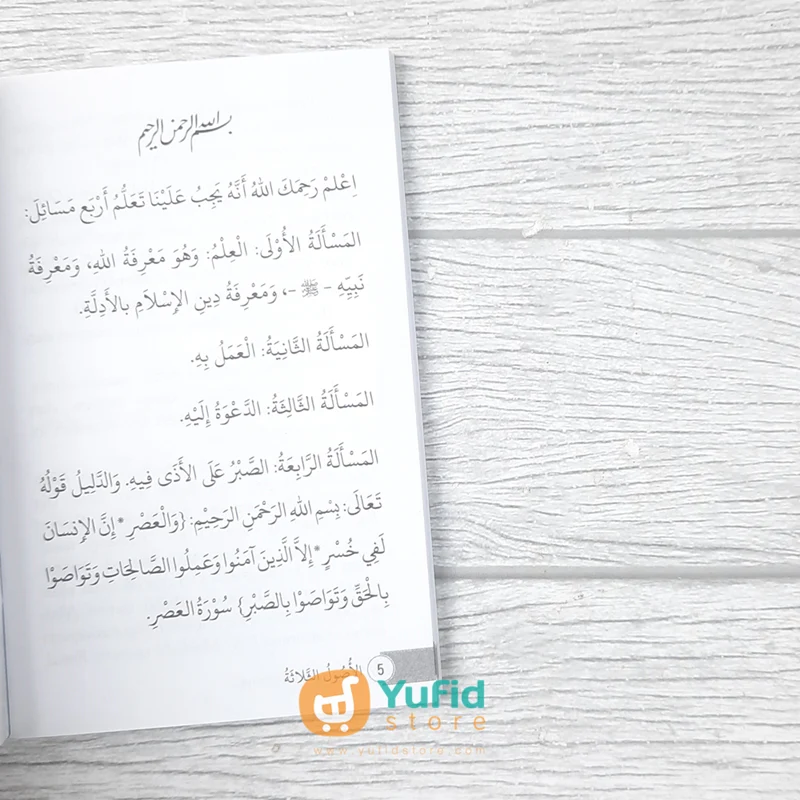 بسم الله الرحمن الرحيم
اِعْلَمْ رَحِمَكَ اللهُ أَنَّهُ يَجِبُ عَلَيْنَا تَعَلُّمُ أَرْبَعِ مَسَائِلَ:
المَسْأَلَةُ الأُوْلَى: الْعِلْمُ: وَهُوَ مَعْرِفَةُ اللهِ، وَمَعْرِفَةُ
نَبِيِّهِ - ﷺ -، وَمَعْرِفَةُ دِينِ الإِسْلَامِ بِالأَدِلَّةِ.
المَسْأَلَةُ الثَّانِيَةُ: الْعَمَلُ بِهِ.
المَسْأَلَةُ الثَّالِثَةُ: الدَّعْوَةُ إِلَيْهِ.
المَسْأَلَةُ الرَّابِعَةُ: الصَّبْرُ عَلَى الأَذَى فِيهِ. وَالدَّلِيلُ قَوْلُهُ
تَعَالَى: بِسْمِ اللهِ الرَّحْمَنِ الرَّحِيْمِ: {وَالْعَصْرِ * إِنَّ الإِنسَانَ
لَفِي خُسْرٍ * إِلاَّ الَّذِينَ آمَنُوا وَعَمِلُوا الصَّالِحَاتِ وَتَوَاصَوْا
بِالْحَقِّ وَتَوَاصَوْا بِالصَّبْرِ} سُوْرَةُ العَصْرِ.
5 الأُصُولُ الثَّلاثَةُ
Yufid
store
www.yufidstore.com